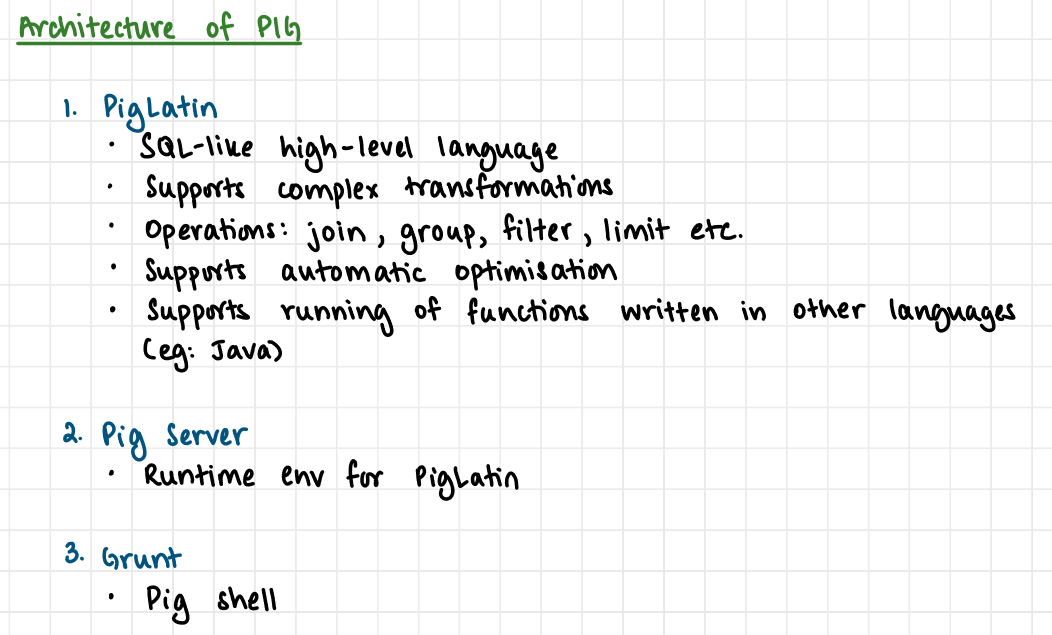 Architecture of PIG
1. PigLatin
• SQL-like high-level language
• Supports complex transformations
• Operations: join, group, filter, limit etc.
• Supports automatic optimisation
• Supports running of functions written in other languages
(eg: Java)
2. Pig Server
• Runtime env for PigLatin
3. Grunt
• Pig shell